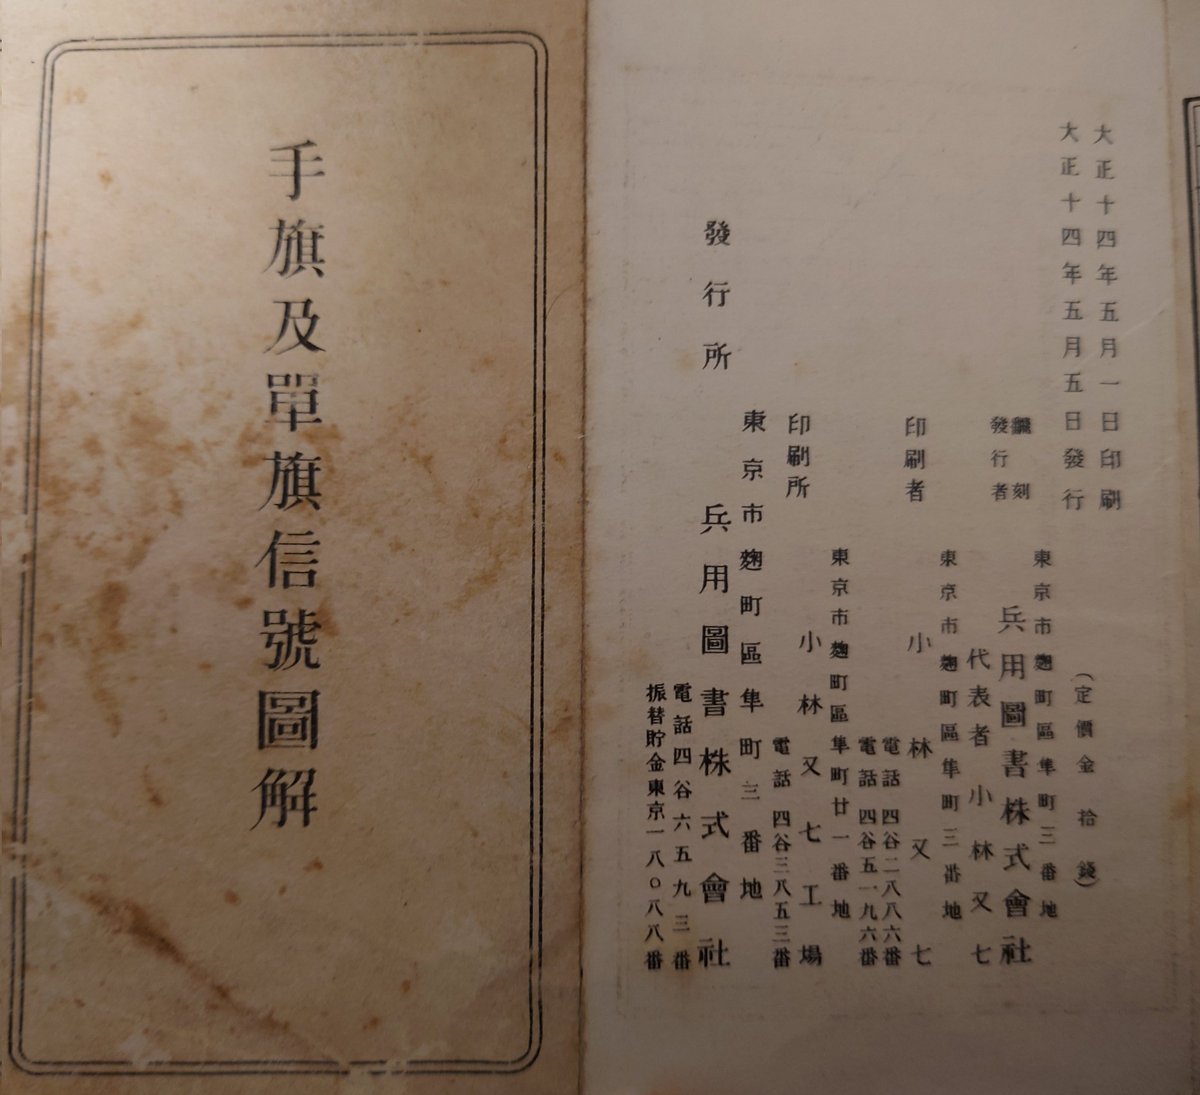 手旗及單旗信號圖解
大正十四年五月一日印刷
大正十四年五月五日發行
(定價金拾錢)
東京市麹町區隼町三番地
飜刻
發行者
兵用圖書株式會社
代表者小林又七
東京市麹町區隼町三番地
印刷者 小林又七
電話四谷二八八六番
電話四谷五一九六番
東京市麹町區隼町廿一番地
印刷所 小林又七工場
電話四谷三八五三番
東京市麹町區隼町三番地
發行所 兵用圖書株式會社
電話四谷六五九三番
振替貯金東京一八〇八八番